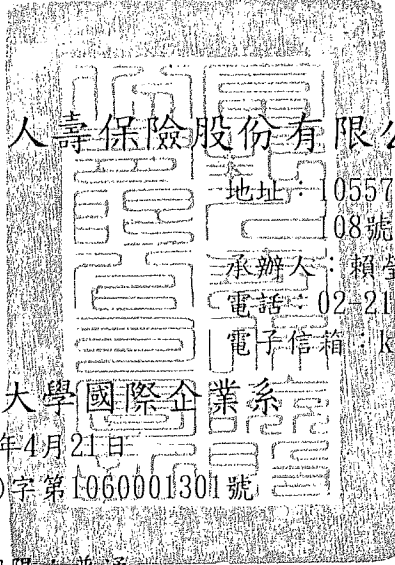 人壽保險股份有限公
地址：10557
108號
承辦人：賴瑩
電話：02-21
電子信箱：k
大學國際企業系
年4月21日
字第1060001301號
普通